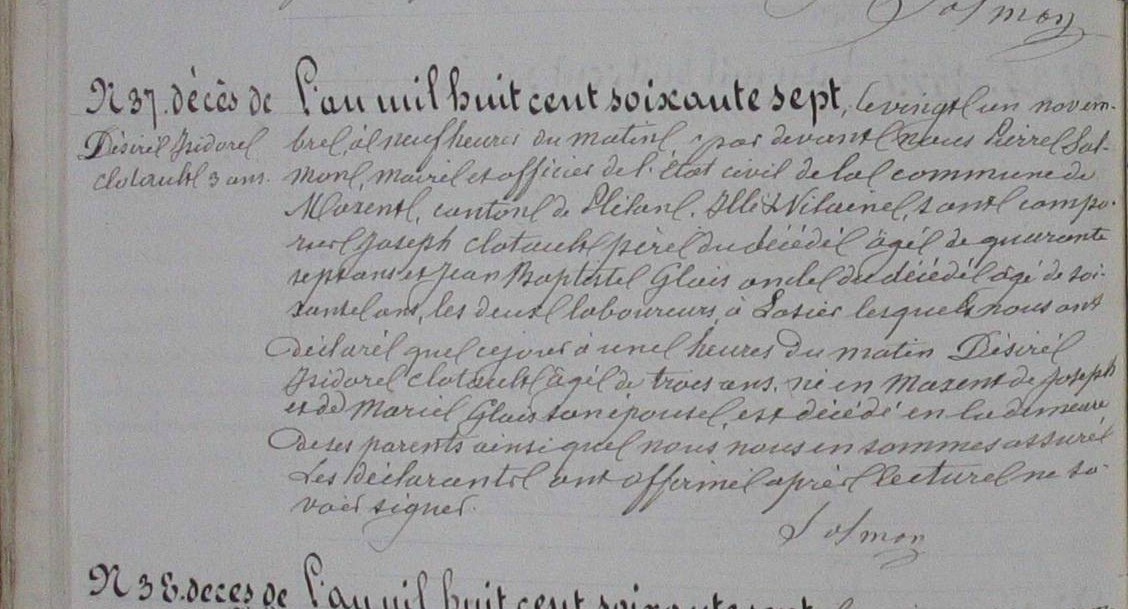 Salmon
N 37. décès de
Désiré Isidore
Clotault 3 ans.
L'an mil huit cent soixante sept, le vingt un novem-
bre, à neuf heures du matin, par devant nous Pierre Sal-
mon, maire et officier de l'état civil de la commune de
Maxent, canton de Plélan, Ille & Vilaine, sont compa-
rus Joseph Clotault père du décédé âgé de quarante
sept ans et Jean Baptiste Glais oncle du décédé âgé de soi-
xante ans, les deux laboureurs à Losier lesquels nous ont
déclaré que ce jour à une heures du matin Désiré
Isidore Clotault âgé de trois ans. né en Maxent de Joseph
et de Marie Glais son épouse, est décédé en la demeure
de ses parents ainsi que nous nous en sommes assuré
Les déclarants ont affirmé après lecture ne sa-
voir signer.
Salmon
N 38. deces de L'an mil huit cent soixante sept